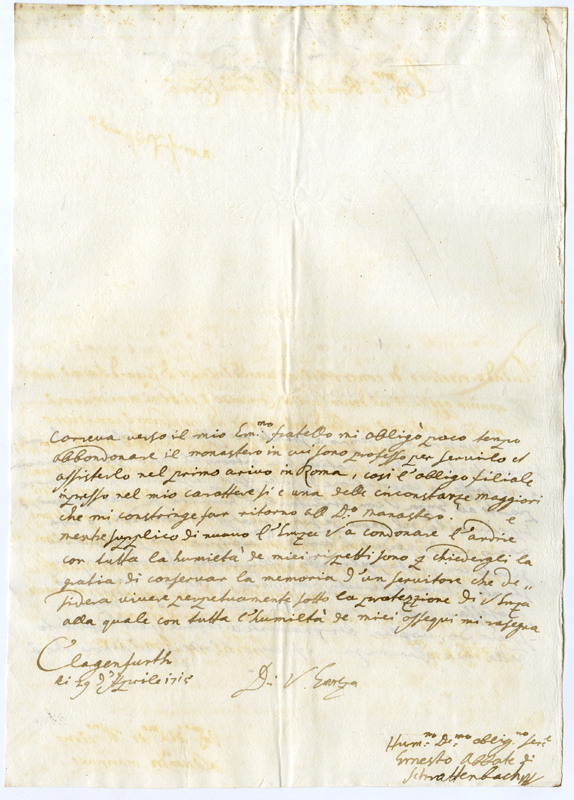 Correva verso il mio Em.mo fratello mi obligò poco tempo
abbondonare il monastero in cui sono professo per servirlo et
assisterlo nel primo arivo in Roma, così l'obligo filiale
inpresso nel mio carattere si è una delle circonstanze maggiori
che mi constringe far ritorno al D.o monastero:
mente supplico di nuovo l'Enza V a condonare l'ardire
con tutta la humiltà de miei rispetti sono q chiedergli la
gratia di conservar la memoria d'un servitore che de„
sidera vivere perpetuamente sotto la protezzione di V Enza
alla quale con tutta l'humiltà de miei ossequi mi rasegna
Clagenfurth
li 29 d'Aprile 1715
Di V. Enza
Hum.mo Di.mo oblig.mo Ser.e
Ernesto Abbate di
Schrattenbach